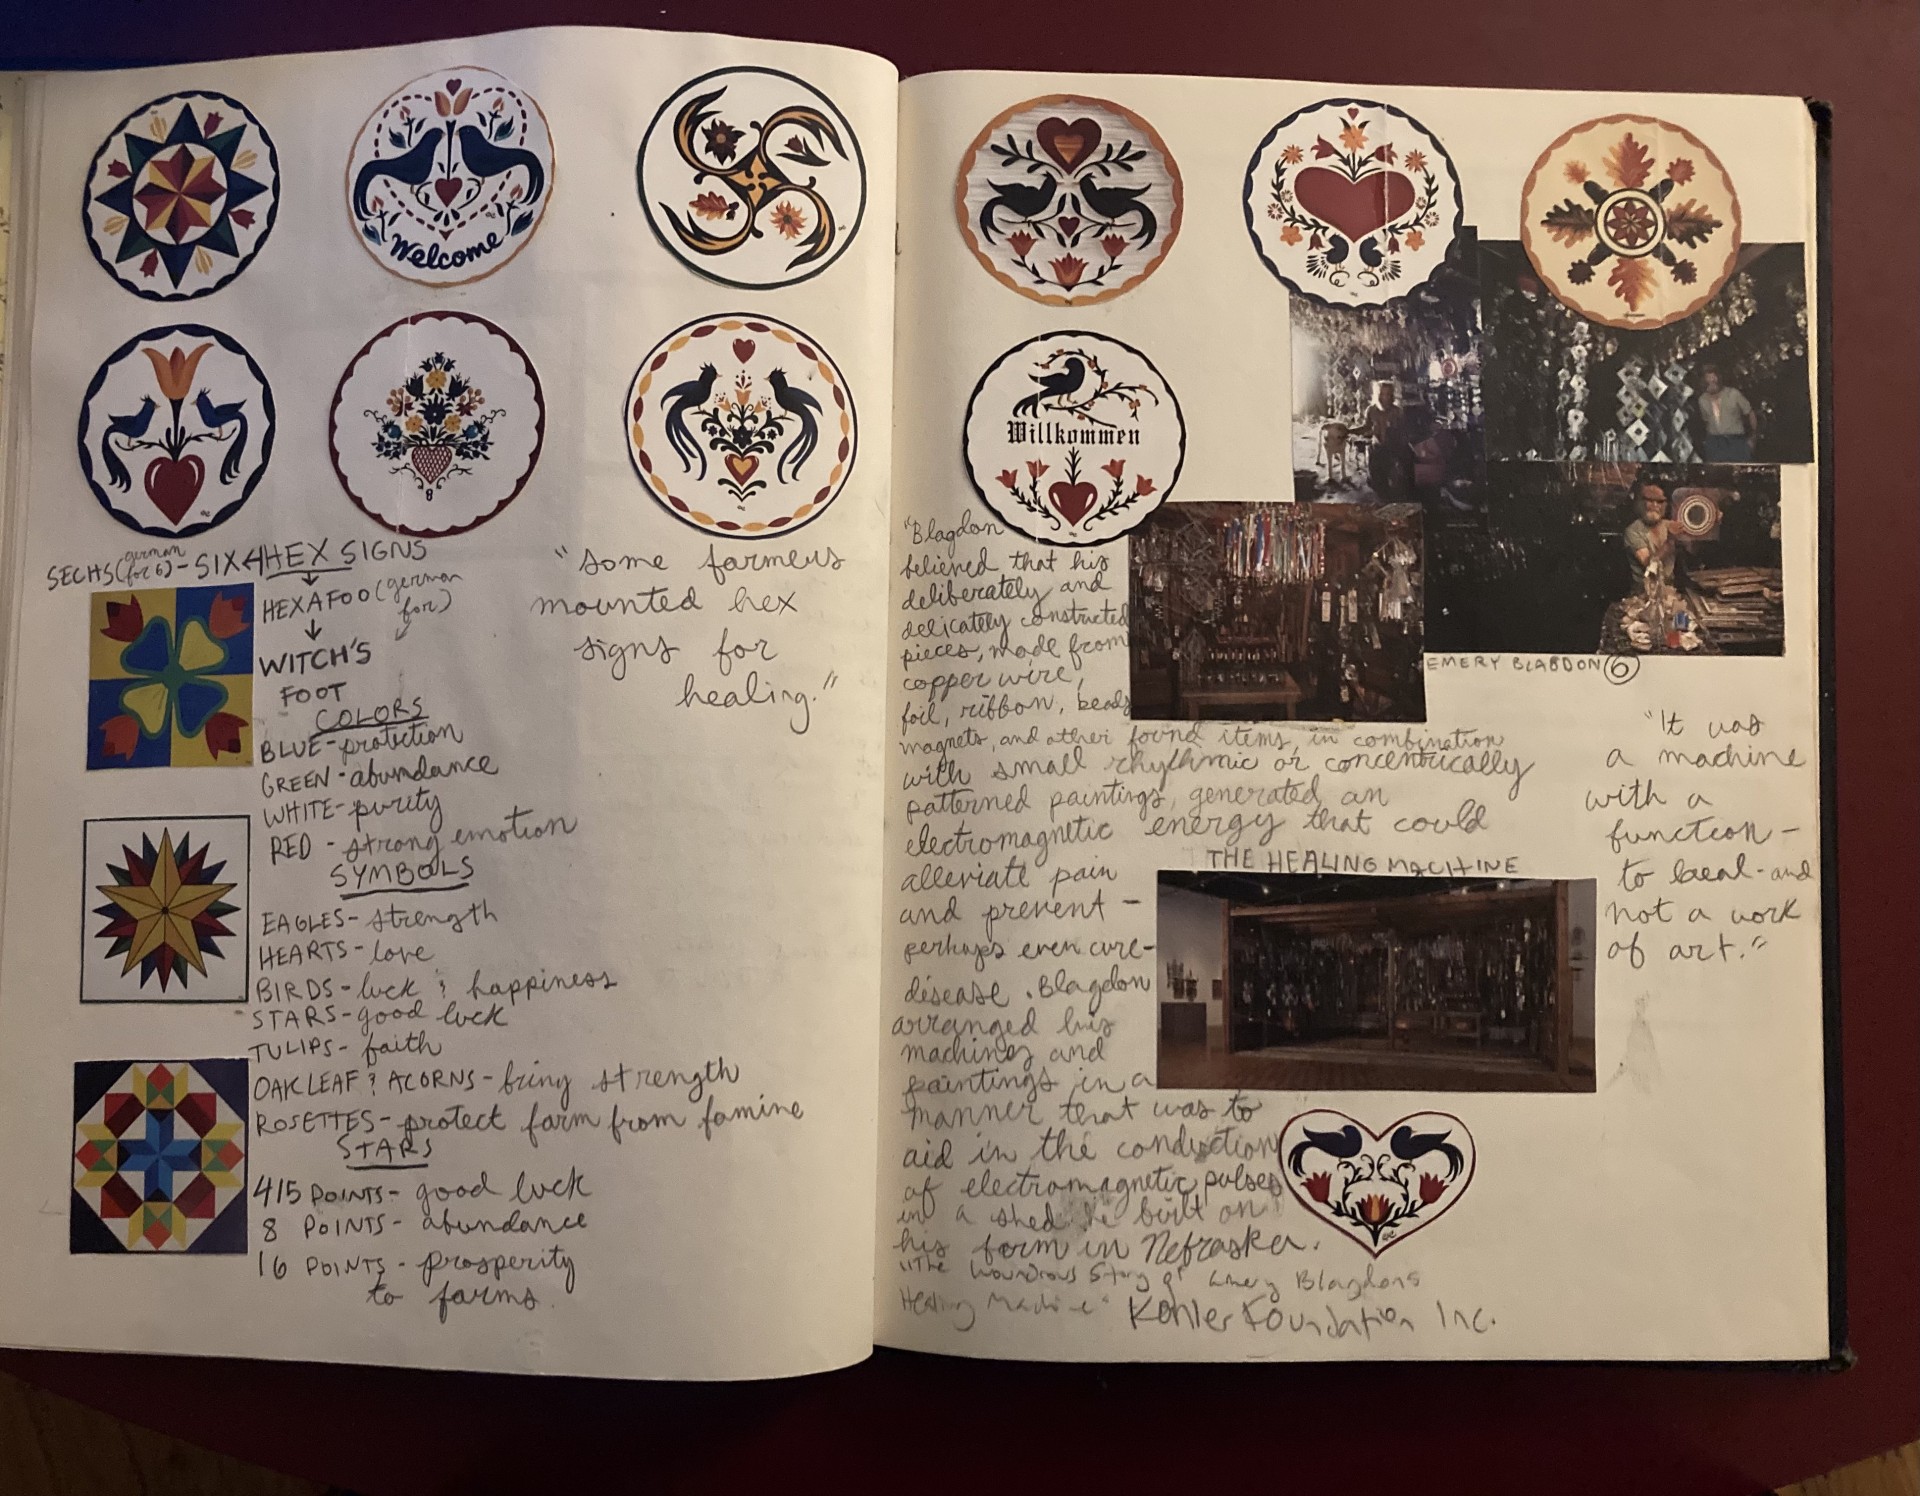 Welcome
SECHS (german for 6) - SIX ← HEX SIGNS
HEXAFOO (german for)
WITCH'S
FOOT
COLORS
BLUE - protection
GREEN - abundance
WHITE - purity
RED - strong emotion
SYMBOLS
EAGLES - strength
HEARTS - love
BIRDS - luck & happiness
STARS - good luck
TULIPS - faith
OAK LEAF & ACORNS - bring strength
ROSETTES - protect farm from famine
STARS
4/5 POINTS - good luck
8 POINTS - abundance
16 POINTS - prosperity
to farms.
"some farmers
mounted hex
signs for
healing."
Willkommen
"Blagdon
believed that his
deliberately and
delicately constructed
pieces, made from
copper wire,
foil, ribbon, beads
magnets, and other found items, in combination
with small rhythmic or concentrically
patterned paintings, generated an
electromagnetic energy that could
alleviate pain
and prevent -
perhaps even cure -
disease. Blagdon
arranged his
machines and
paintings in a
manner that was to
aid in the conduction
of electromagnetic pulses
in a shed he built on
his farm in Nebraska.
"The Wondrous Story of Emery Blagdons
Healing Machine" Kohler Foundation Inc.
EMERY BLABDON 6
THE HEALING MACHINE
"It was
a machine
with a
function -
to heal - and
not a work
of art."